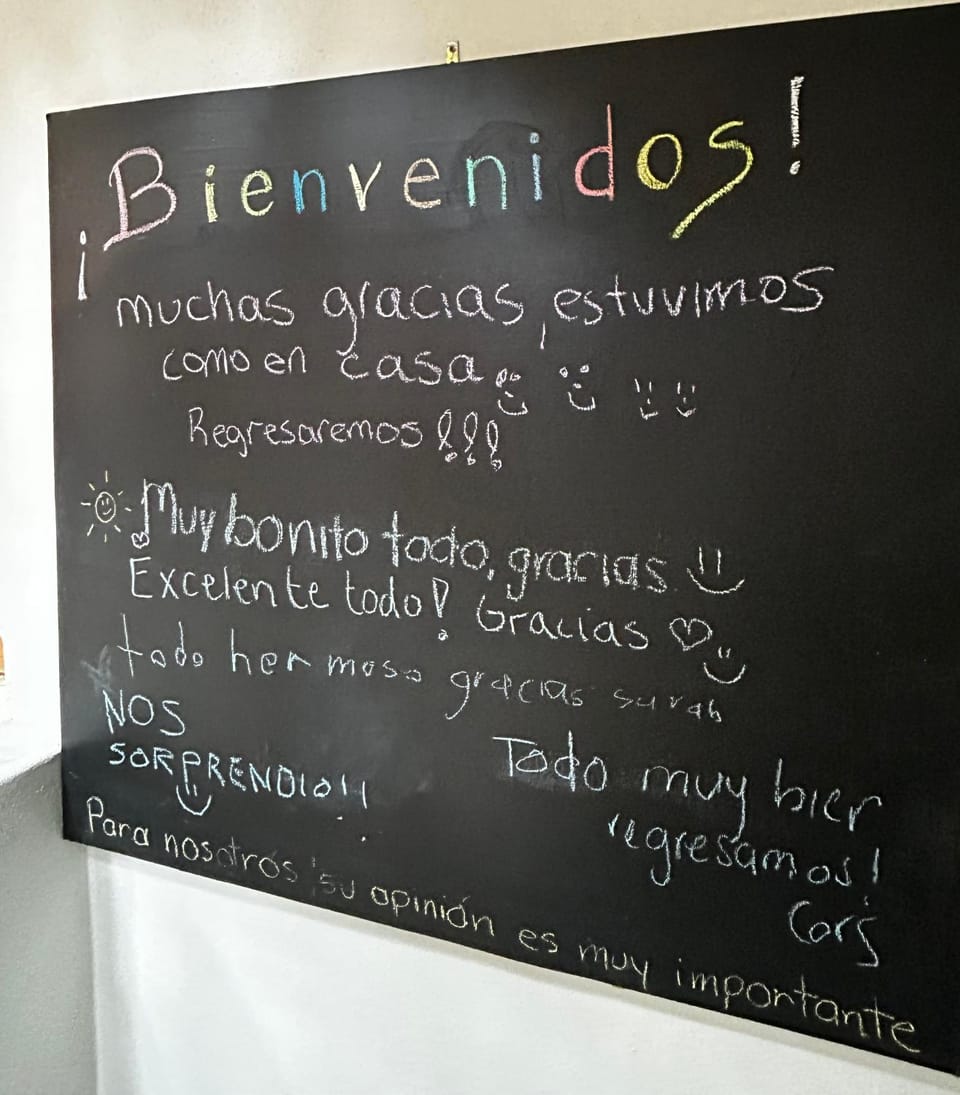 ¡Bienvenidos!
muchas gracias, estuvimos
como en casa
Regresaremos!!!
Muy bonito todo, gracias
Excelente todo! Gracias
todo hermoso gracias sarah
NOS
SORPRENDIO!!
Todo muy bien
regresamos!
Para nosotros su opinión es muy importante